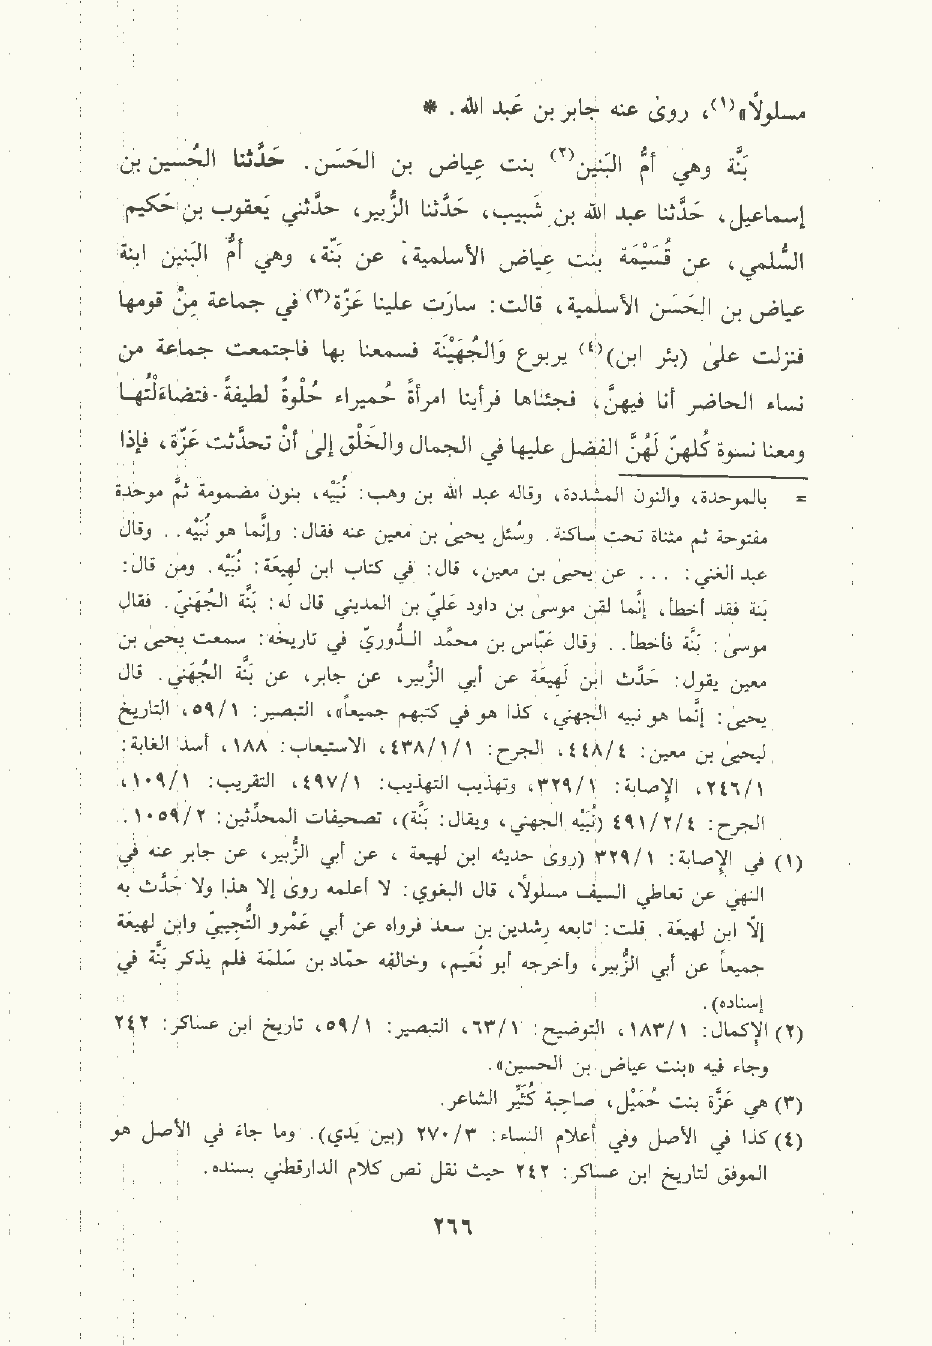 مسلولاً»(١)، روىٰ عنه جابر بن عَبد الله . *
بَنَّة وهي أمُّ البَنين(٢) بنت عِياض بن الحَسَن. حَدَّثنا الحُسين بن
إسماعيل، حَدَّثنا عبد الله بن شَبيب، حَدَّثنا الزُّبير، حدَّثني يَعقوب بن حَكيم
السُّلمي، عن قُسَيْمَة بنت عِياض الأسلمية، عن بَنّة، وهي أُمُّ البَنين ابنة
عياض بن الحَسَن الأسلمية، قالت: سارَت علينا عَزّة(٣) في جماعة مِنْ قومها
فنزلت علىٰ (بئر ابن)(٤) يربوع وَالجُهَيْنَة فسمعنا بها فاجتمعت جماعة من
نساء الحاضر أنا فيهنّ، فجئناها فرأينا امرأةً حُميراء حُلْوةً لطيفةً فتضاءَلْتُهـا
ومعنا نسوة كُلهنّ لَهُنَّ الفضل عليها في الجمال والخَلْق إلىٰ أنْ تحدثت عَزّة، فإذا
= بالموحدة، والنون المشددة، وقاله عبد الله بن وهب: نُبَيْه، بنون مضمومة ثمّ موحدة
مفتوحة ثم مثناة تحت ساكنة. وسُئل يحيىٰ بن معين عنه فقال: وإنَّما هو نُبَيْه. . وقال
عبد الغني: . . . عن يحيىٰ بن معين، قال: في كتاب ابن لَهِيعَة: نُبَيْه. ومن قال:
بَنة فقد أخطأ، إنَّما لقن موسىٰ بن داود عَليّ بن المديني قال له: بَنَّة الجُهَنيّ. فقال
موسىٰ: بَنَّة فأخطأ. . وقال عَبّاس بن محمَّد الـدُّوريّ في تاريخه: سمعت يحيىٰ بن
معين يقول: حَدَّث ابن لَهِيعَة عن أبي الزُّبير، عن جابر، عن بَنَّة الجُهَني. قال
يحيىٰ: إنَّما هو نبيه الجهني، كذا هو في كتبهم جميعاً»، التبصير: ٥٩/١، التاريخ
ليحيىٰ بن معين: ٤٤٨/٤، الجرح: ٤٣٨/١/١، الاستيعاب: ١٨٨، أسد الغابة:
٢٤٦/١، الإصابة: ٣٢٩/١، وتهذيب التهذيب: ٤٩٧/١، التقريب: ١٠٩/١،
الجرح: ٤٩١/٢/٤ (نُبَيْه الجهني، ويقال: بَنَّة)، تصحيفات المحدِّثين: ١٠٥٩/٢.
(١) في الإصابة: ٣٢٩/١ (روىٰ حديثه ابن لهيعة ، عن أبي الزُّبير، عن جابر عنه في
النهي عن تعاطي السيف مسلولاً، قال البغوي: لا أعلمه روىٰ إلا هذا ولا حَدَّث به
إلاّ ابن لهِيعَة. قلت: تابعه رشدين بن سعد فرواه عن أبي عَمْرو التُّجِيبيّ وابن لهيعَة
جميعاً عن أبي الزُّبير، وأخرجه أبو نُعَيم، وخالفه حمّاد بن سَلَمَة فلم يذكر بَنَّة في
إسناده).
(٢) الإكمال: ١٨٣/١، التوضيح: ٦٣/١، التبصير: ٥٩/١، تاريخ ابن عساكر: ٢٤٢
وجاء فيه «بنت عياض بن الحسين».
(٣) هي عَزَّة بنت حُمَيْل، صاحِبة كُثَيِّر الشاعر.
(٤) كذا في الأصل وفي أعلام النساء: ٢٧٠/٣ (بين يَدي). وما جاء في الأصل هو
الموفق لتاريخ ابن عساكر: ٢٤٢ حيث نقل نص كلام الدارقطني بسنده.
٢٦٦